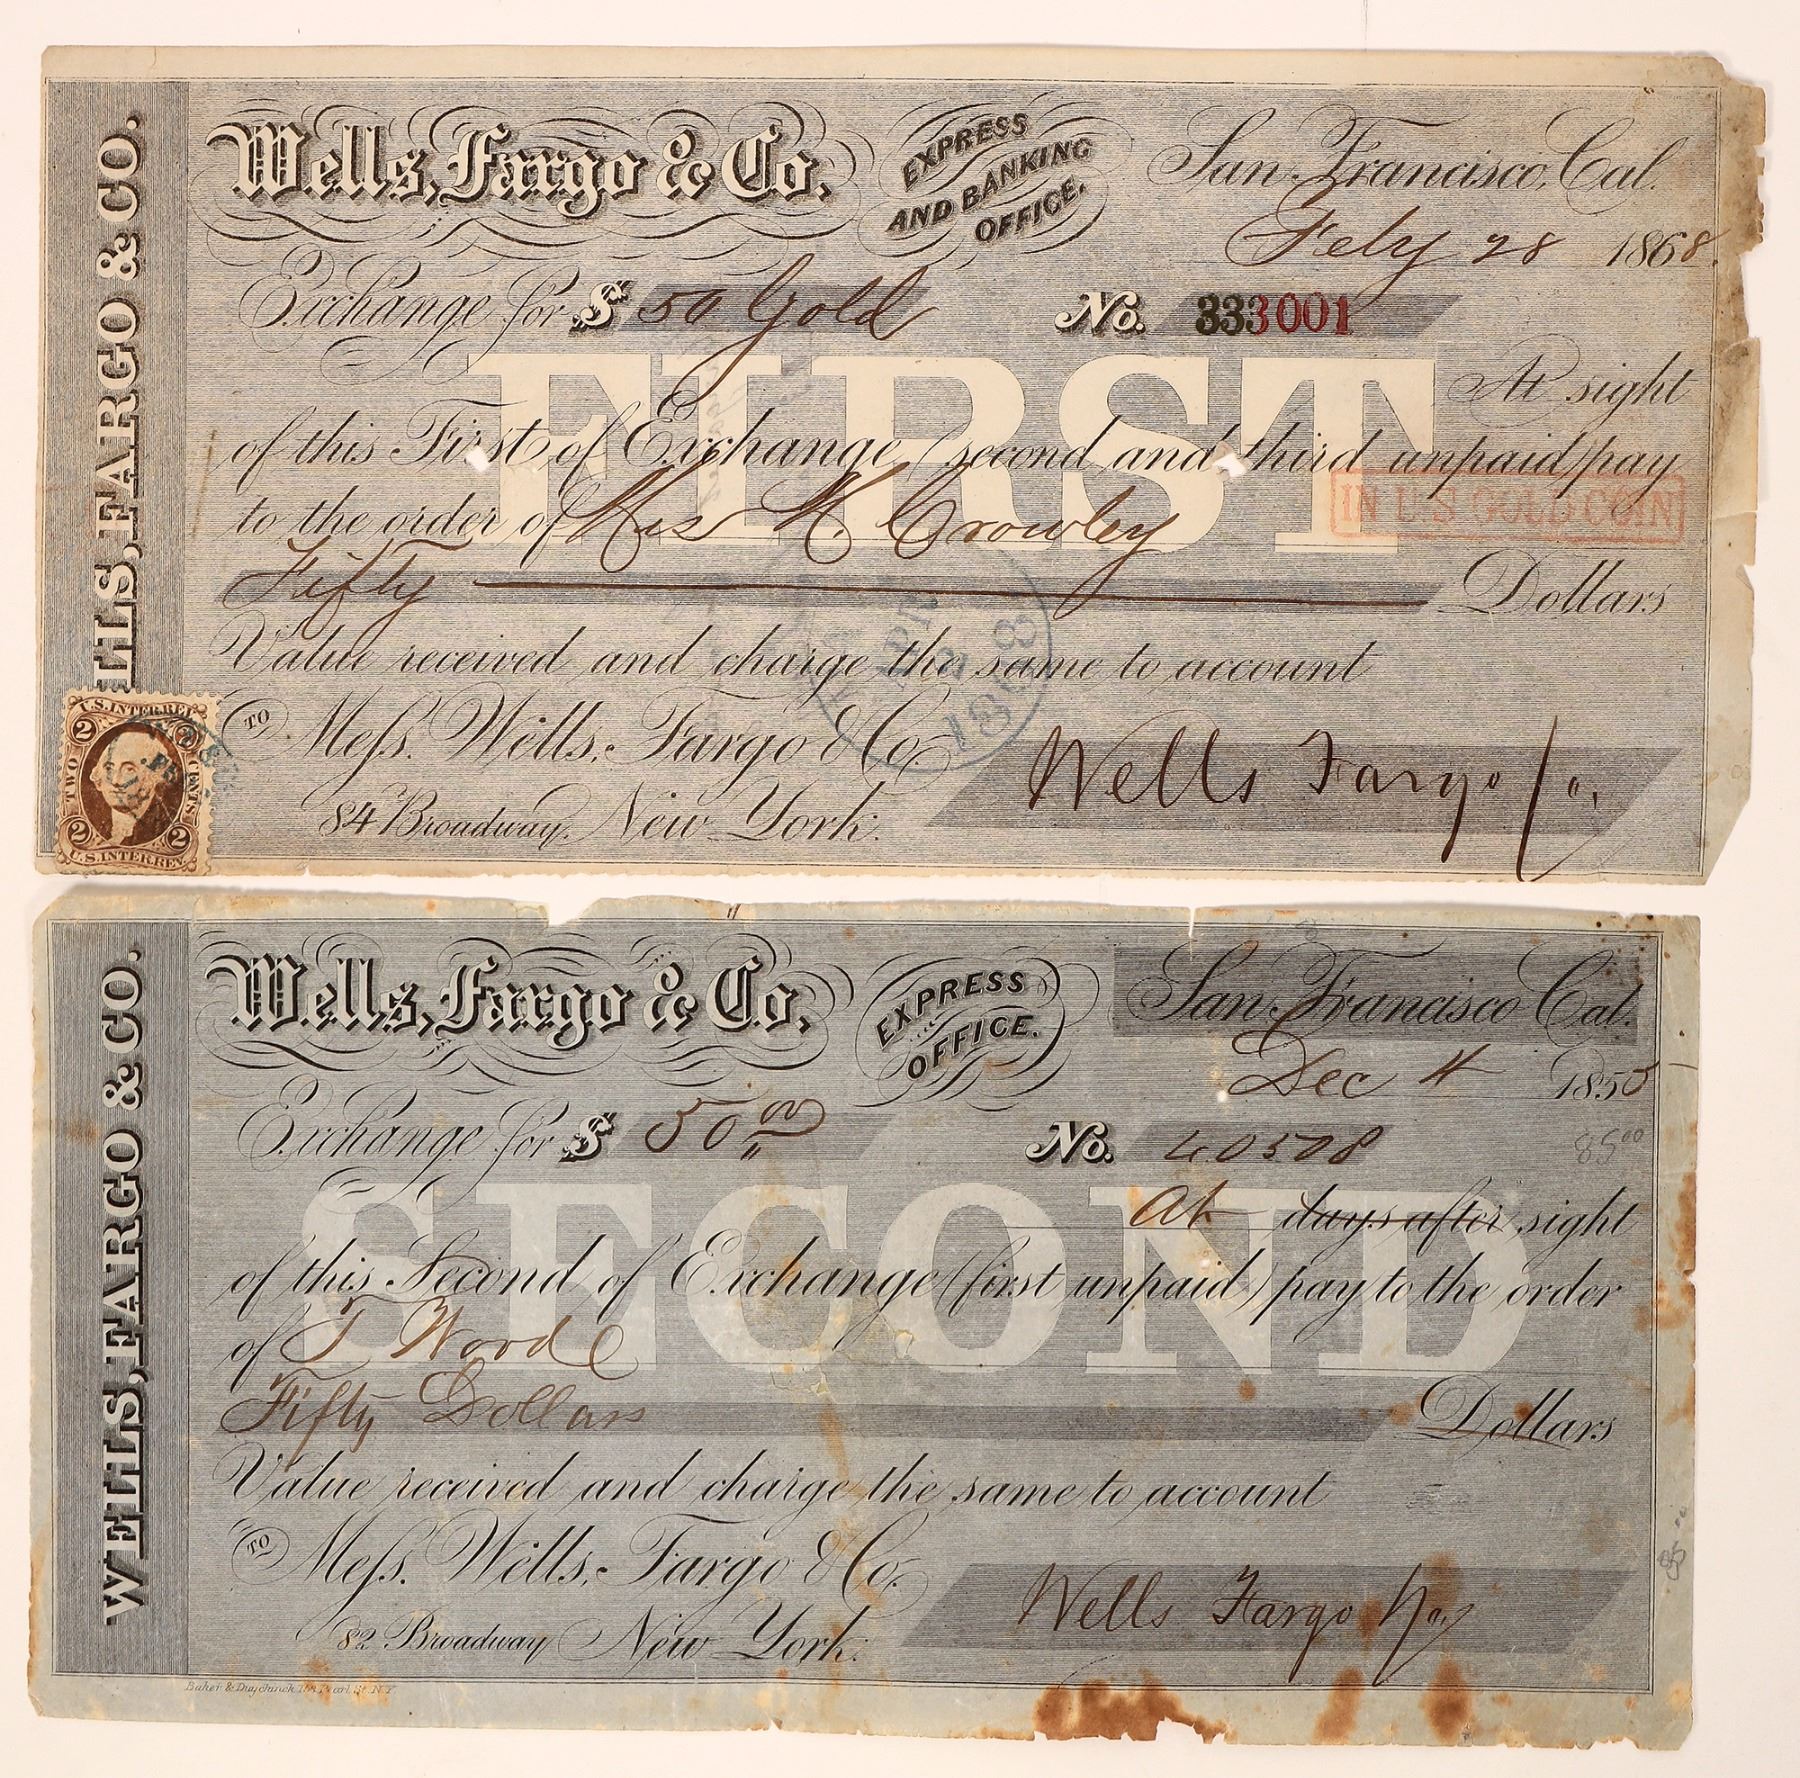 WELLS, FARGO & CO.
Wells, Fargo & Co.
EXPRESS
AND BANKING
OFFICE.
San Francisco, Cal.
Feby 28 1868.
Exchange for $ 50 Gold No. 333001
FIRST
At sight
of this First of Exchange (second and third unpaid) pay
IN U S GOLD COIN
to the order of Mrs M. Crowley
Fifty Dollars
Value received and charge the same to account
TO Mess. Wells, Fargo & Co.
84 Broadway, New York.
Wells Fargo Co.
1868
U.S. INTER. REV.
2 2
TWO CENTS
2 2
U.S. INTER. REV.
WELLS, FARGO & CO.
Wells, Fargo & Co.
EXPRESS
OFFICE.
San Francisco Cal.
Dec 4 1855
Exchange for $ 50 00 No. 40508
85 00
SECOND
At days after sight
of this Second of Exchange (first unpaid) pay to the order
of T Wood
Fifty Dollars Dollars
Value received and charge the same to account
TO Mess. Wells, Fargo & Co.
82 Broadway New York.
Wells Fargo & Co
Baker & Pearl St. N.Y.